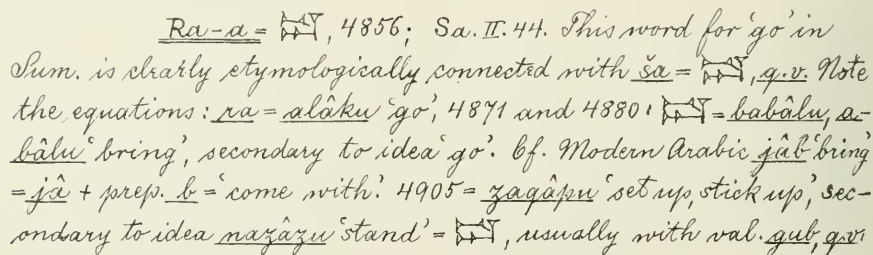 Ra-a = 𒁺, 4856; Sa. II. 44. This word for 'go' in
Sum. is clearly etymologically connected with ša = 𒁺, q.v. Note
the equations: ra = alâku 'go', 4871 and 4880; 𒁺 = babâlu, a-
bâlu 'bring', secondary to idea 'go'. Cf. Modern Arabic jâb 'bring'
= jâ + prep. b = 'come with'. 4905 = zaqâpu 'set up, stick up', sec-
ondary to idea nazâzu 'stand' = 𒁺, usually with val. gub, q.v.